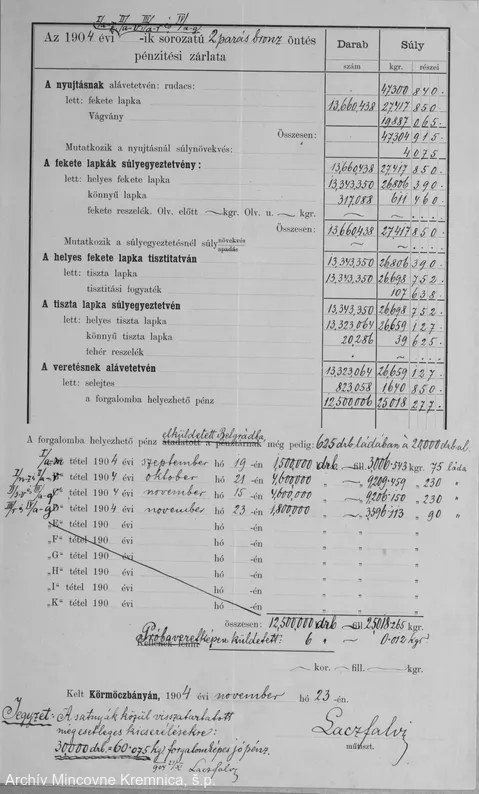 I/a-z II/a-v III/a-r és IV/a-g
Az 1904 évi -ik sorozatú 2 parás bronz öntés
pénzitési zárlata
Darab Súly
szám kgr. részei
A nyujtásnak alávetetvén: rudacs: 47300 840
lett: fekete lapka 13,660,438 27417 850
Vágvány 19887 065
Összesen: 47304 915
Mutatkozik a nyujtásnál súlynövekvés: 4 075
A fekete lapkák súlyegyeztetvény: 13,660,438 27417 850
lett: helyes fekete lapka 13,343,350 26806 390
könnyű lapka 317,088 611 460
fekete reszelék. Olv. előtt — kgr. Olv. u. — kgr.
Összesen: 13,660,438 27417 850
Mutatkozik a súlyegyeztetésnél súly növekvés apadás
A helyes fekete lapka tisztitatván 13,343,350 26806 390
lett: tiszta lapka 13,343,350 26698 752
tisztitási fogyaték 107 638
A tiszta lapka súlyegyeztetvén 13,343,350 26698 752
lett: helyes tiszta lapka 13,323,064 26659 127
könnyű tiszta lapka 20,286 39 625
fehér reszelék
A veretésnek alávetetvén 13,323,064 26659 127
lett: selejtes 823,058 1640 850
a forgalomba helyezhető pénz 12,500,006 25018 277
A forgalomba helyezhető pénz elküldetett Belgrádba átadatott a pénztárnak még pedig: 625 drb ládában à 20,000 drbal.
tétel 1904 évi szeptember hó 19 -én 1,500,000 drb — fill. 3006·543 kgr. 75 láda
tétel 1904 évi oktober hó 21 -én 4,600,000 „ — „ 9209·459 „ 230 „
tétel 1904 évi november hó 15 -én 4,600,000 „ — „ 9206·150 „ 230 „
tétel 1904 évi november hó 23 -én 1,800,000 „ — „ 3596·113 „ 90 „
„E" tétel 190 évi hó -én
„F" tétel 190 évi hó -én
„G" tétel 190 évi hó -én
„H" tétel 190 évi hó -én
„I" tétel 190 évi hó -én
„K" tétel 190 évi hó -én
összesen: 12,500,000 drb — fill. 25018·265 kgr.
Próbaveretképen küldetett: 6 „ — 0·012 kgr
— kor. — fill. — kgr.
Kelt Körmöczbányán, 1904 évi november hó 23 -én.
Jegyzet: A satnyák közül visszatartatott
meg esetleges kicserélésekre:
30,000 drb. = 60·075 kg forgalomképes jó pénz.
Laczfalvi
Laczfalvi
művészt.
Archív Mincovne Kremnica, š.p.